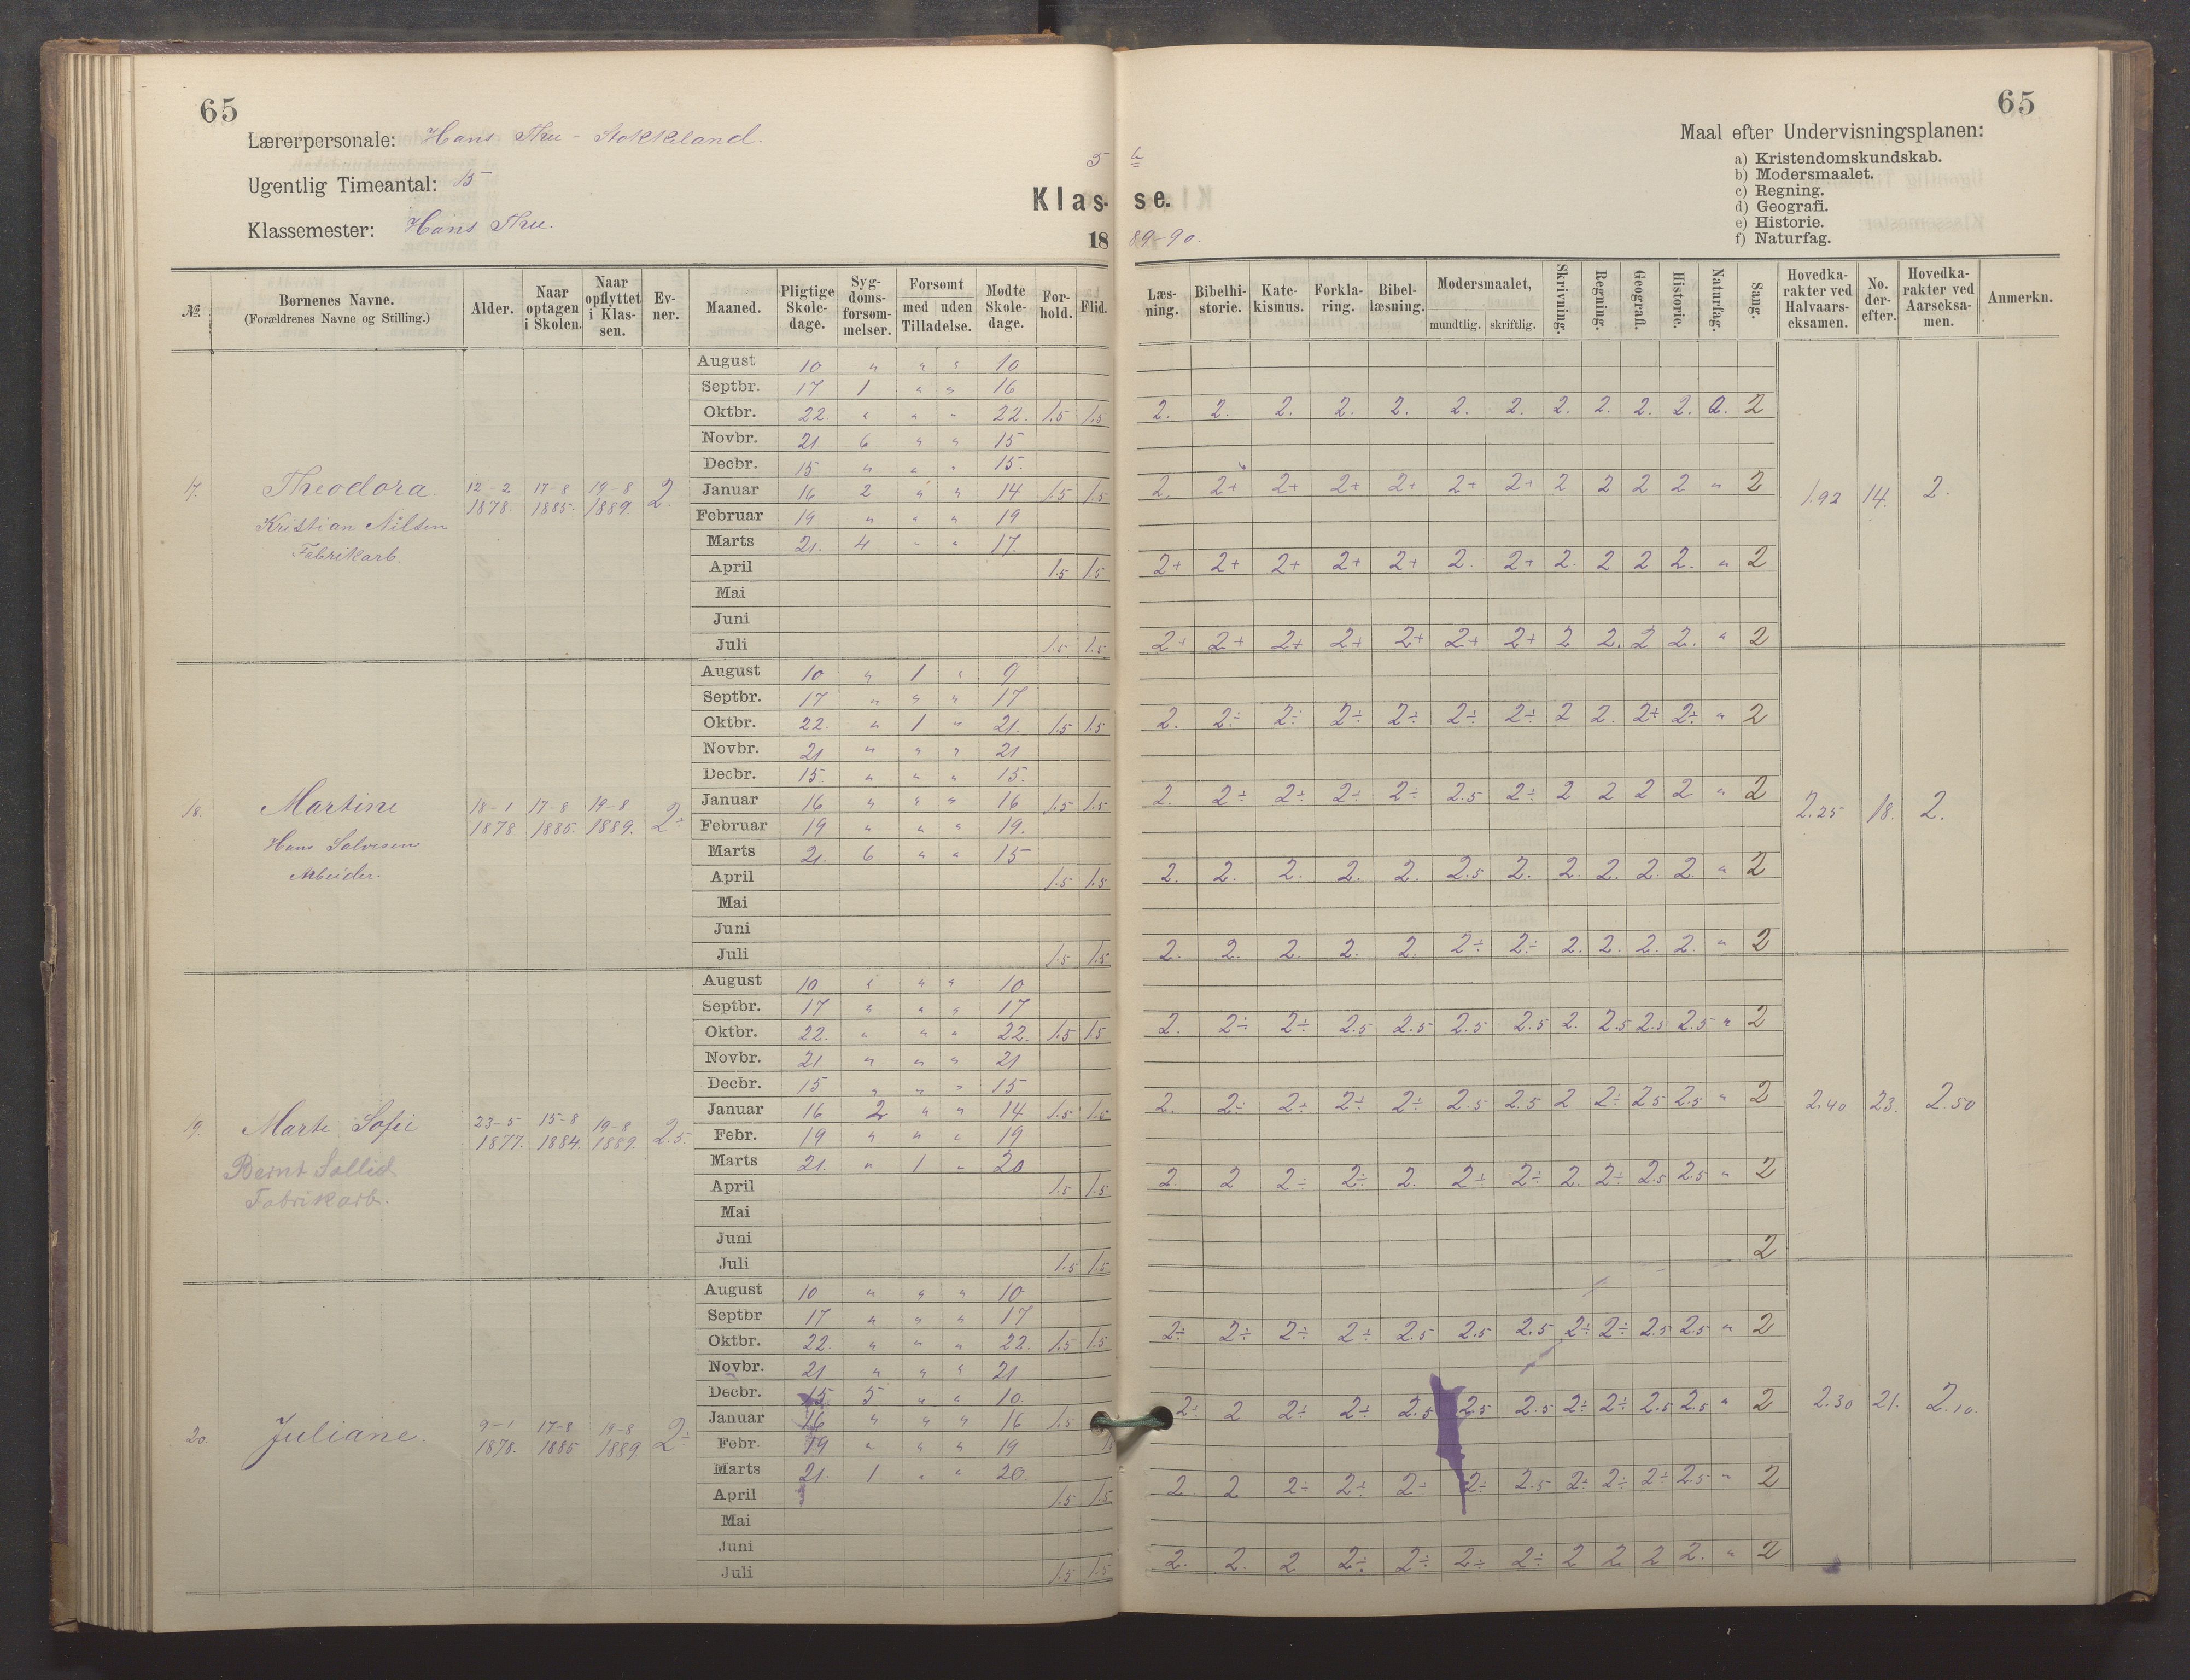 65
65
Lærerpersonale: Hans Thu - Stokkeland.
Ugentlig Timeantal: 15
Klassemester: Hans Thu.
5
Klasse.
1889-90.
Maal efter Undervisningsplanen:
a) Kristendomskundskab.
b) Modersmaalet.
c) Regning.
d) Geografi.
e) Historie.
f) Naturfag.
№. | Børnenes Navne. (Forældrenes Navne og Stilling.) | Alder. | Naar optagen i Skolen. | Naar opflyttet i Klassen. | Evner. | Maaned. | Pligtige Skoledage. | Sygdomsforsømmelser. | Forsømt med / uden Tilladelse. | Mødte Skoledage. | Forhold. | Flid. | Læsning. | Bibelhistorie. | Katekismus. | Forklaring. | Bibellæsning. | Modersmaalet, mundtlig. | skriftlig. | Skrivning. | Regning. | Geografi. | Historie. | Naturfag. | Sang. | Hovedkarakter ved Halvaarseksamen. | No. derefter. | Hovedkarakter ved Aarseksamen. | Anmerkn.
17. Theodora. 12-2 1878. 17-8 1885. 19-8 1889. 2.
Kristian Nilsen
Fabrikarb.
August 10 " " " 10
Septbr. 17 1 " " 16
Oktbr. 22. " " " 22. 1.5 1.5 2. 2. 2. 2. 2. 2. 2. 2. 2. 2. 2. 2
Novbr. 21 6 " " 15
Decbr. 15 " " " 15.
Januar 16 2 " " 14 1.5 1.5 2. 2+ 2+ 2+ 2+ 2+ 2+ 2 2 2 2 " 2
Februar 19 " " " 19
Marts 21. 4 " " 17.
April 1.5 1.5 2+ 2+ 2+ 2+ 2+ 2. 2+ 2. 2 2 2. " 2
Mai
Juni
Juli 1.5 1.5 2+ 2+ 2+ 2+ 2+ 2+ 2+ 2 2. 2 2. " 2
1.92 14. 2.
18. Martine 18-1 1878. 17-8 1885 19-8 1889. 2÷
Hans Salvesen
Arbeider.
August 10 " 1 " 9
Septbr. 17 " " " 17
Oktbr. 22. " 1 " 21. 1.5 1.5 2. 2÷ 2÷ 2÷ 2÷ 2÷ 2÷ 2 2. 2÷ 2÷ " 2
Novbr. 21 " " " 21
Decbr. 15. " " " 15.
Januar 16 " " " 16 1.5 1.5 2. 2÷ 2÷ 2÷ 2÷ 2.5 2÷ 2 2 2 2 " 2
Februar 19 " " " 19.
Marts 21. 6 " " 15
April 1.5 1.5 2. 2. 2. 2. 2. 2.5 2. 2. 2. 2. 2. " 2
Mai
Juni
Juli 1.5 1.5 2. 2. 2. 2. 2. 2÷ 2÷ 2. 2. 2. 2. " 2
2.25 18. 2.
19. Marte Sofie 23-5 1877. 15-8 1884. 19-8 1889. 2.5.
Bernt Sollid
Fabrikarb.
August 10 " " " 10
Septbr. 17 " " " 17
Oktbr. 22. " " " 22. 1.5 1.5 2. 2÷ 2÷ 2.5 2.5 2.5 2.5 2. 2.5 2.5 2.5 " 2
Novbr. 21 " " " 21
Decbr. 15 " " " 15
Januar 16 2 " " 14 1.5 1.5 2. 2÷ 2÷ 2÷ 2÷ 2.5 2.5 2 2÷ 2.5 2.5 " 2
Febr. 19 " " " 19
Marts 21. " 1 " 20
April 1.5 1.5 2. 2 2÷ 2÷ 2. 2÷ 2÷ 2. 2÷ 2.5 2.5 " 2
Mai
Juni
Juli 1.5 1.5 2
2.40 23. 2.50
20. Juliane. 9-1 1878. 17-8 1885 19-8 1889. 2÷
August 10 " " " 10
Septbr 17 " " " 17
Oktbr. 22. " " " 22. 1.5 1.5 2÷ 2÷ 2÷ 2÷ 2.5 2.5 2.5 2÷ 2÷ 2.5 2.5 " 2
Novbr. 21 " " " 21
Decbr. 15 5 " " 10.
Januar 16 " " " 16 1.5 2÷ 2 2÷ 2÷ 2.5 2.5 2.5 2÷ 2÷ 2.5 2.5 " 2
Febr. 19 " " " 19
Marts 21. 1 " " 20.
April 1.5 1.5 2 2 2÷ 2÷ 2÷ 2÷ 2.5 2÷ 2÷ 2÷ 2.5 " 2
Mai
Juni
Juli 1.5 1.5 2. 2. 2 2÷ 2÷ 2÷ 2÷ 2 2 2 2. " 2
2.30 21. 2.10.